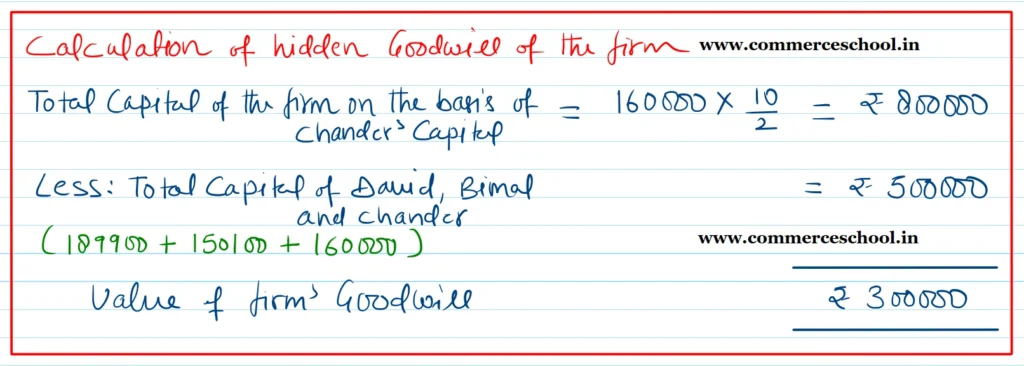 Calculation of hidden Goodwill of the firm www.commerceschool.in
Total Capital of the firm on the basis of = 160000 × 10/2 = ₹ 800000
Chander's Capital
Less: Total Capital of David, Bimal = ₹ 500000
and Chander
(189900 + 150100 + 160000) www.commerceschool.in
Value of firm's Goodwill ₹ 300000